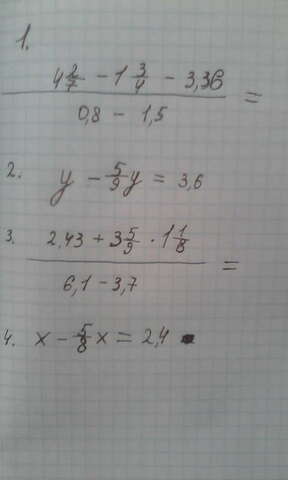 1.
4 2/7 - 1 3/4 - 3,36
0,8 - 1,5 =
2. y - 5/9 y = 3,6
3. 2,43 + 3 5/9 · 1 1/8
6,1 - 3,7 =
4. x - 5/8 x = 2,4